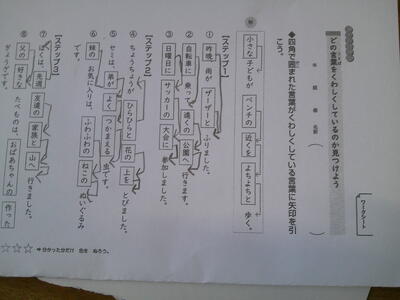 ワークシート
どの言葉をくわしくしているのか見つけよう
年 組 番 名前( )
◆四角で囲まれた言葉がくわしくしている言葉に矢印を引こう。
例
小さな 子どもが ベンチの 近くを よちよちと 歩く。
【ステップ1】
① 昨晩、雨が ザーザーと ふりました。
② 自転車に 乗って 遠くの 公園へ 行きます。
③ 日曜日に サッカーの 大会に 参加しました。
【ステップ2】
④ ちょうちょうが ひらひらと 花の 上を とびました。
⑤ セミは、弟が よく つかまえる 虫です。
⑥ 妹の お気に入りは、ふわふわの ねこの ぬいぐるみです。
【ステップ3】
⑦ ぼくは、先週 友達の 家族と 山へ 行きました。
⑧ 父の 好きな たべものは、おばあちゃんの 作った ぎょうざです。
☆☆☆ ⇦分かった分だけ 色を ぬろう。